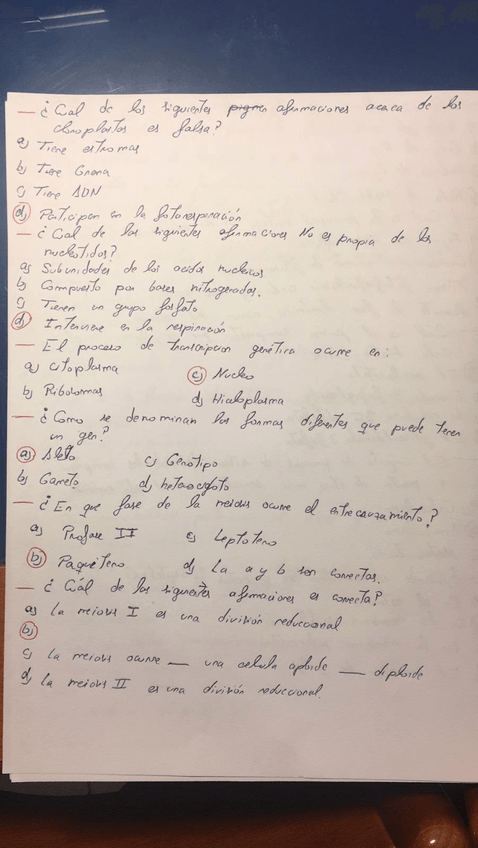 — ¿Cual de los siguientes afirmaciones acaca de los
cloroplastos es falsa?
a) Tiene estromas
b) Tiene Grana
c) Tiene ADN
d) Participan en la fotorespiración
— ¿Cual de las siguientes afirmaciones No es propia de los
nucleotidos?
a) Subunidades de los acidos nucleicos
b) Compuesto por bases nitrogenadas.
c) Tienen un grupo fosfato
d) Interviene en la respiración
— El proceso de transcripcion genética ocurre en:
a) citoplasma c) Nucleo
b) Ribosomas d) Hialoplasma
— ¿Como se denominan las formas diferentes que puede tener
un gen?
a) Alelo c) Genotipo
b) Gameto d) heterocigoto
— ¿En que fase de la meiosis ocurre el entrecruzamiento?
a) Profase II c) Leptoteno
b) Paquiteno d) La a y b son correctas.
— ¿Cuál de las siguientes afirmaciones es correcta?
a) la meiosis I es una división reduccional
b)
c) la meiosis ocurre — una celula aploide — diploide
d) la meiosis II es una división reduccional.